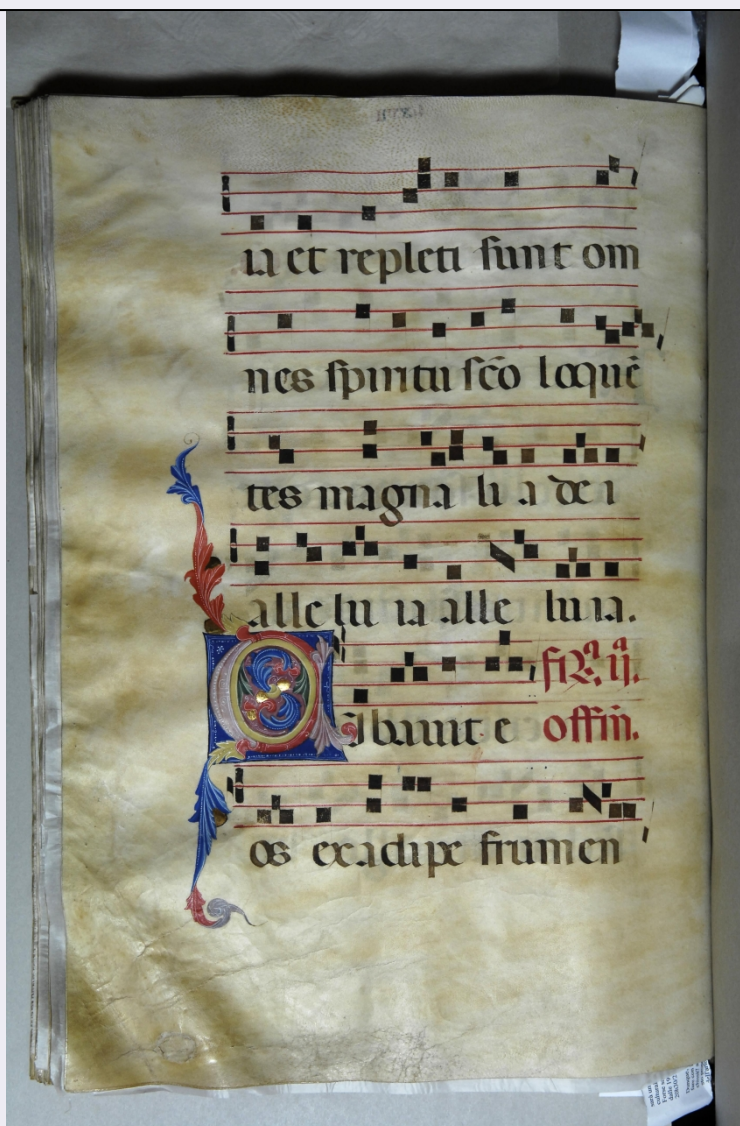 ia et repleti sunt om
nes spiritu sc̄o loquē
tes magna li a de i
alle lu ia alle lu ia.
Cibauit e fr̄a ij.
offm̄.
os ex adipe frumen